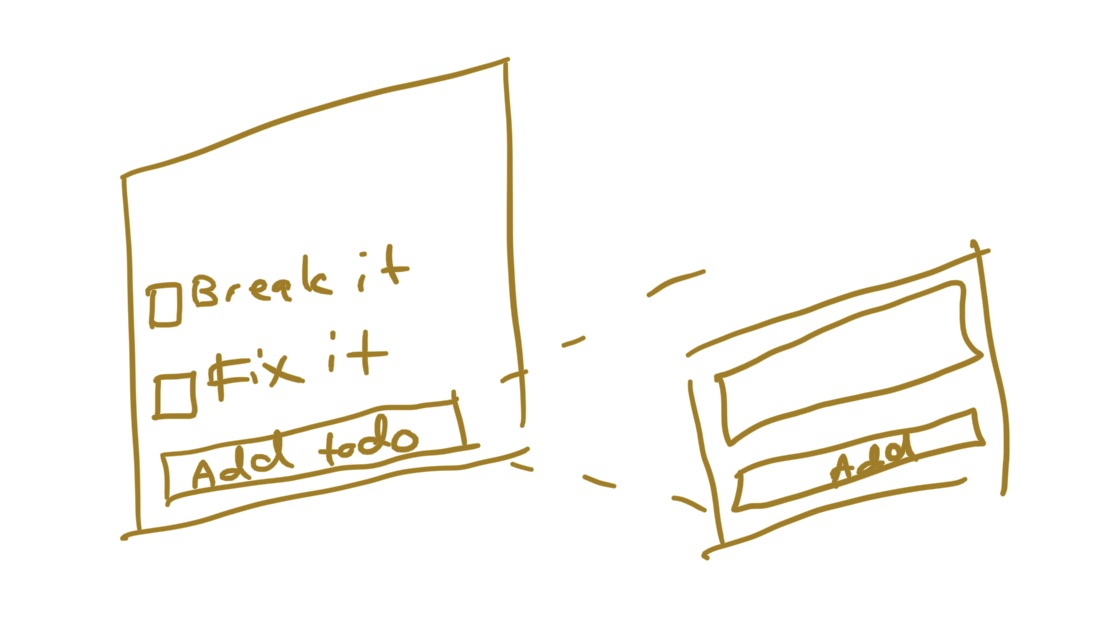 Break it
Fix it
Add todo
Add